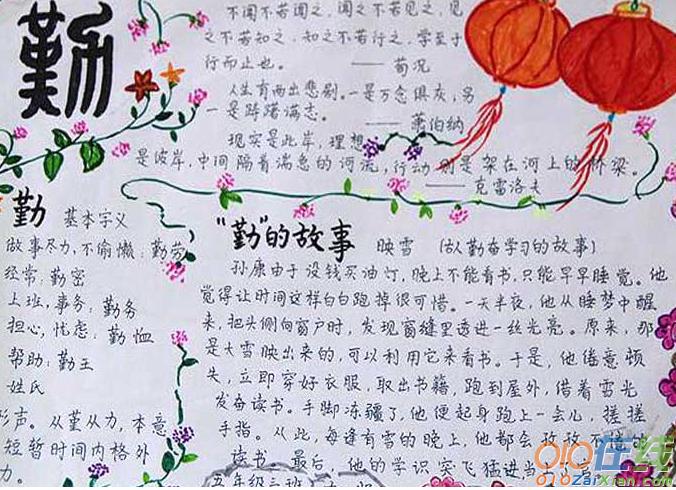 勤
不闻不若闻之,闻之不若见之,见
之不若知之,知之不若行之,学至于
行而止也。
——荀况
人生有两出悲剧。一是万念俱灰,另
一是踌躇满志。
——萧伯纳
现实是此岸,理想
是彼岸,中间隔着湍急的河流,行动则是架在河上的桥梁。
——克雷洛夫
勤 基本字义
做事尽力,不偷懒:勤劳
经常:勤密
上班,事务:勤务
担心,忧虑:勤恤
帮助:勤王
姓氏
形声。从堇从力,本意
短暂时间内格外
力。
“勤”的故事 映雪 (古人勤奋学习的故事)
孙康由于没钱买油灯,晚上不能看书,只能早早睡觉。他
觉得让时间这样白白跑掉很可惜。一天半夜,他从睡梦中醒
来,把头侧向窗户时,发现窗缝里透进一丝光亮。原来,那
是大雪映出来的,可以利用它来看书。于是,他倦意顿
失,立即穿好衣服,取出书籍,跑到屋外,借着雪光
发奋读书。手脚冻疆了,他便起身跑上一会儿,搓搓
手指。从此,每逢有雪的晚上,他都会孜孜不倦的
读书。最后,他的学识突飞猛进当
五年级三班
010在线
zaiXian.com